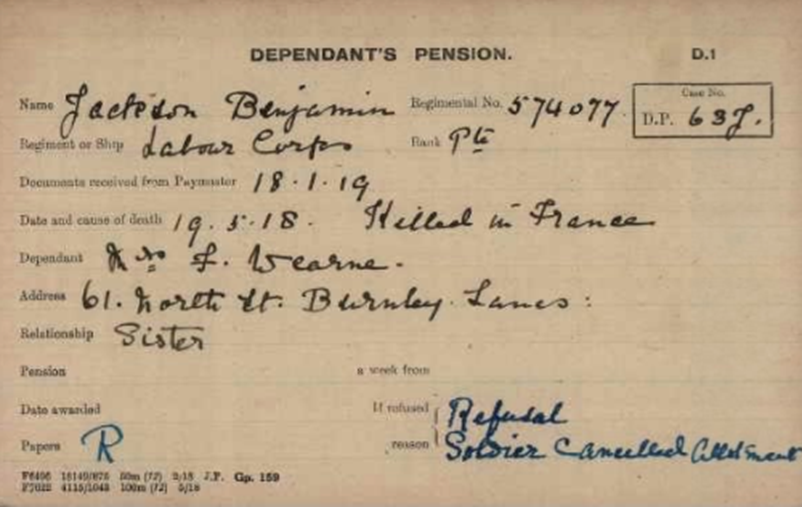 DEPENDANT'S PENSION. D.1
Name Jackson Benjamin Regimental No. 574077.
Case No.
D.P. 637.
Regiment or Ship Labour Corps Rank Pte
Documents received from Paymaster 18.1.19
Date and cause of death 19.5.18. Killed in France
Dependant Mrs F. Wearne.
Address 61. North St. Burnley. Lancs:
Relationship Sister
Pension a week from
Date awarded If refused Refusal
Papers R reason Soldier Cancelled Allotment
F6496 18149/876 50m (12) 2/18 J.P. Gp. 159
F7022 4115/1043 100m (12) 5/18